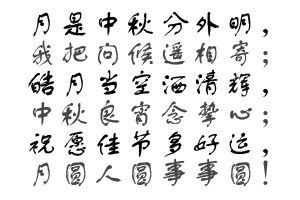 月是中秋分外明，
我把问候遥相寄；
皓月当空洒清辉，
中秋良宵念挚心；
祝愿佳节多好运，
月圆人圆事事圆！